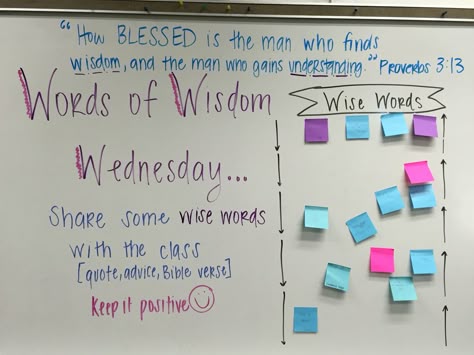 "How BLESSED is the man who finds
wisdom, and the man who gains understanding." Proverbs 3:13
Words of Wisdom
Wednesday...
Share some wise words
with the class
[quote, advice, Bible verse]
Keep it positive
Wise Words